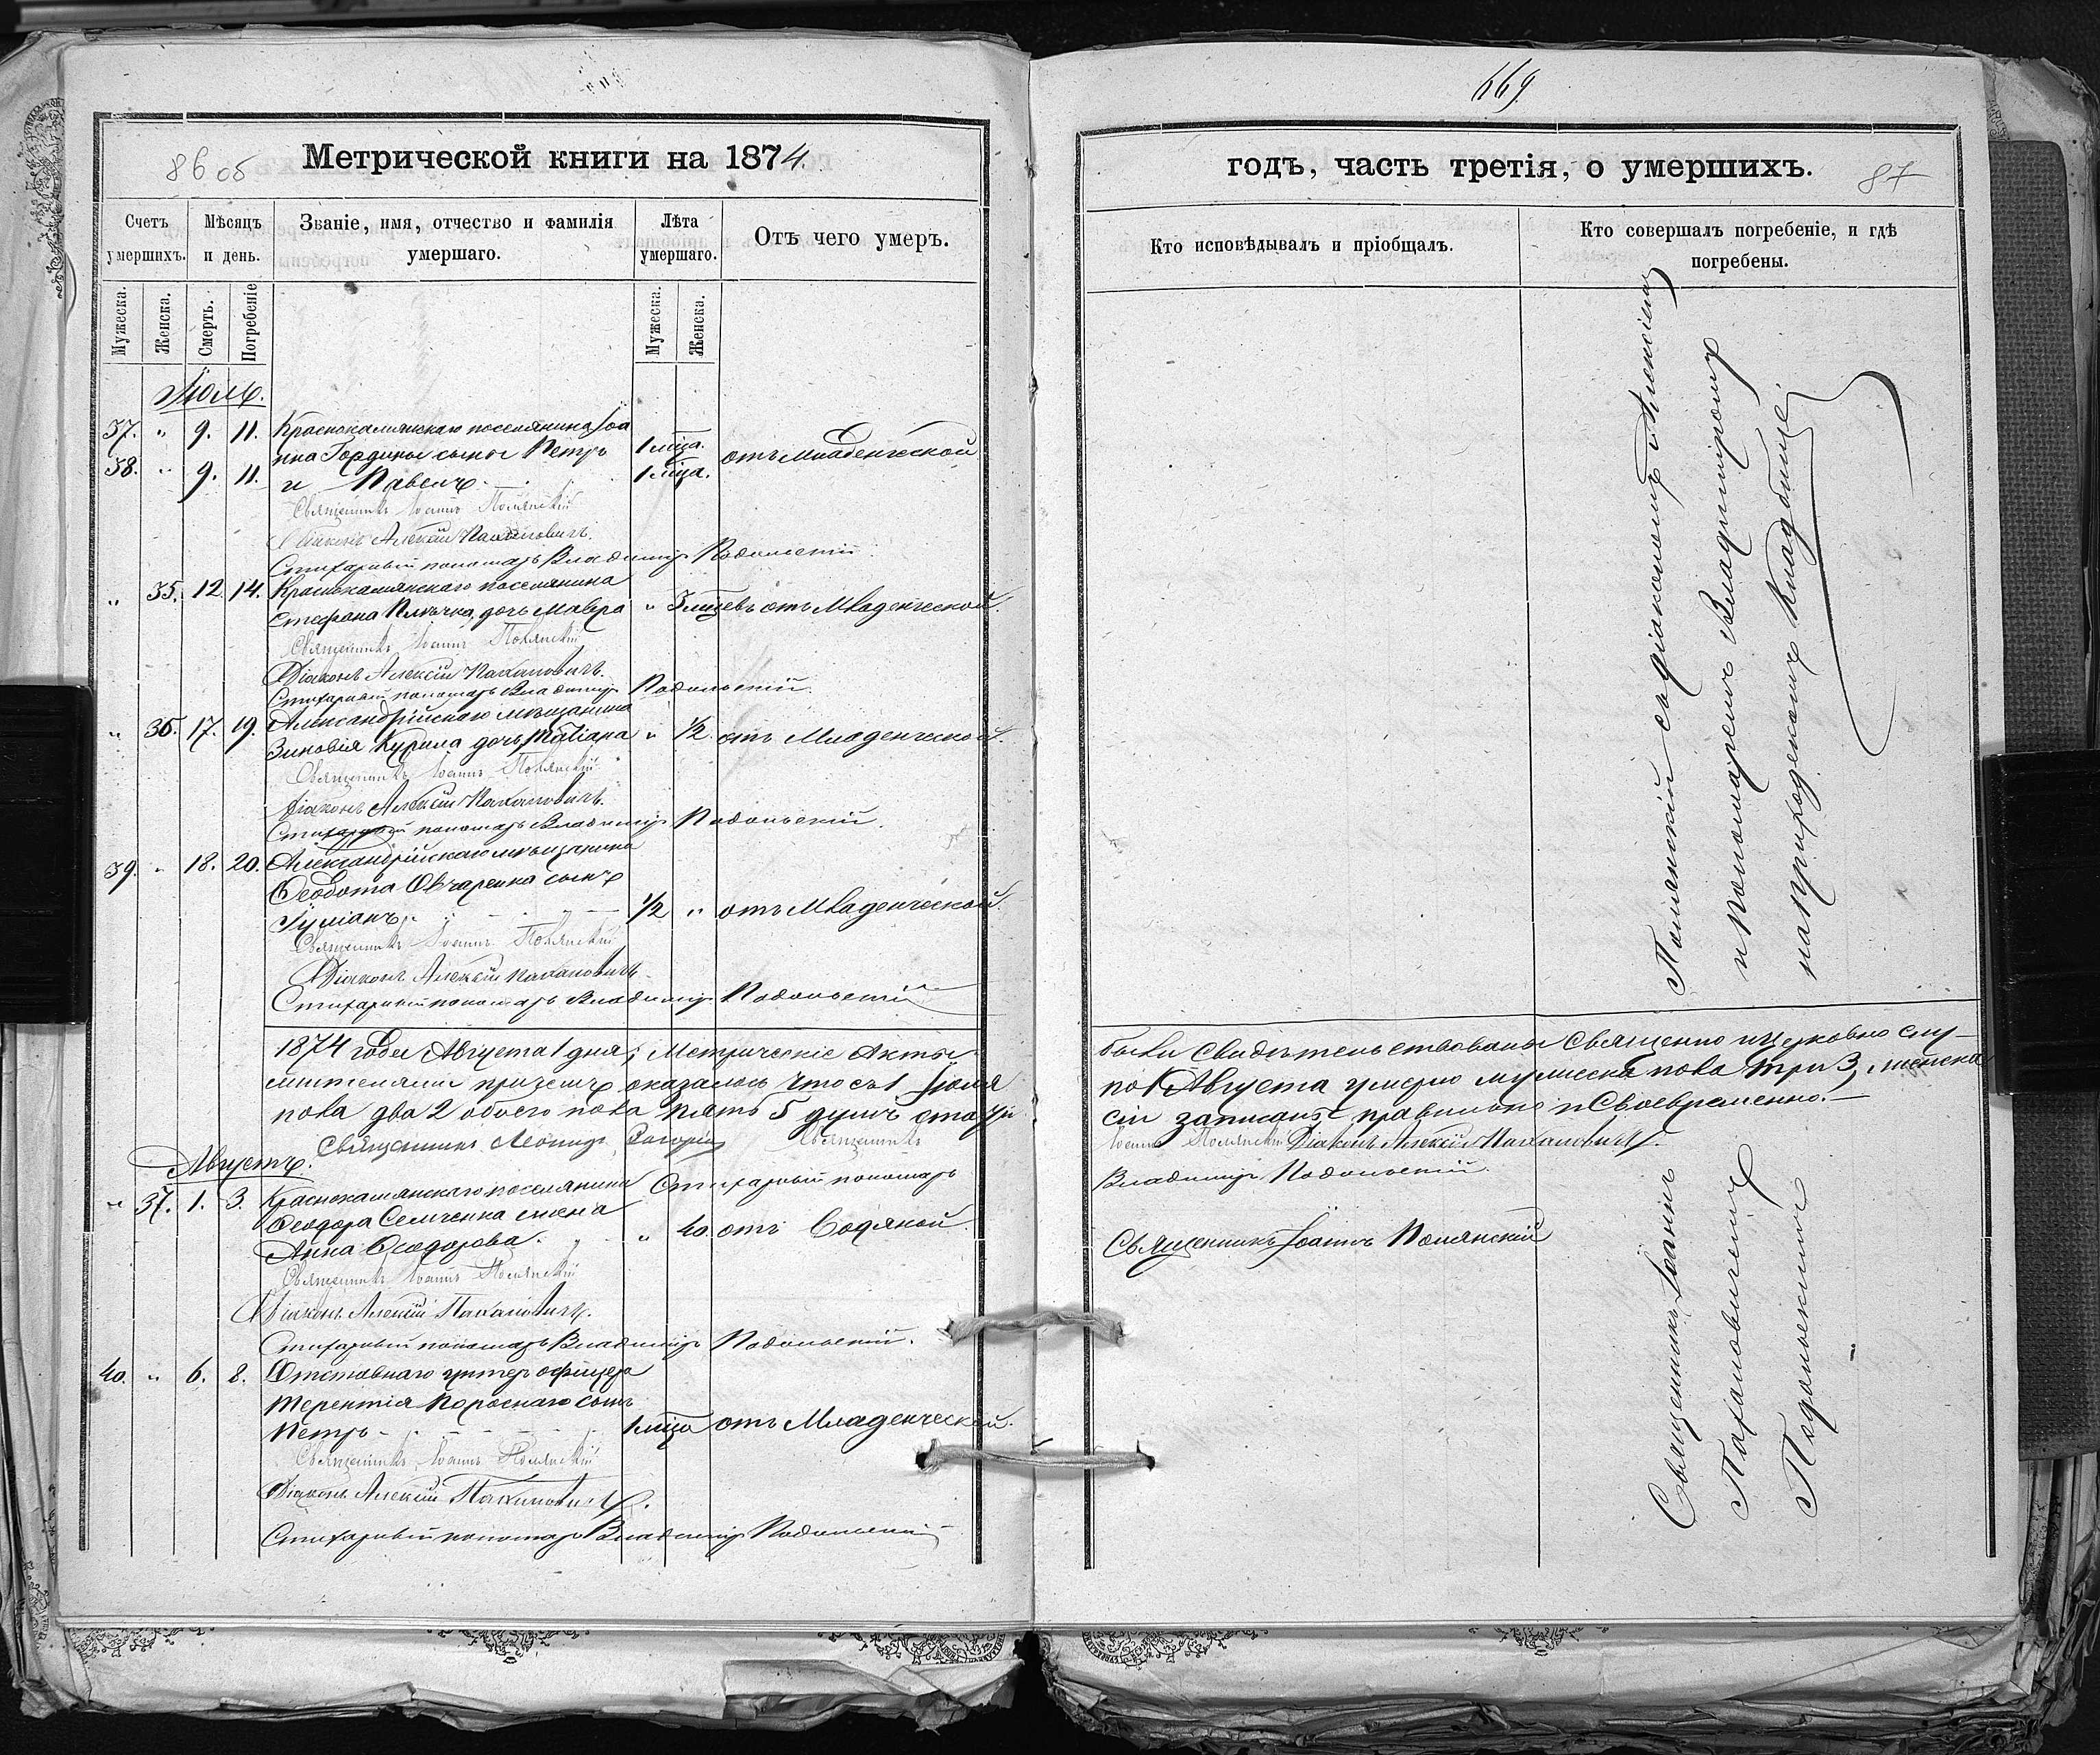 86 об
Метрической книги на 1874.
Счетъ умершихъ.
Мѣсяцъ и день.
Званіе, имя, отчество и фамилія умершаго.
Лѣта умершаго.
Отъ чего умеръ.
Мужеска.
Женска.
Смерть.
Погребеніе
Мужеска.
Женска.
Іюль.
37. " 9. 11. Краснокамянскаго поселянина Іоа
нна Гордины сыны Петръ 1 мѣца.
38. " 9. 11. и Павелъ 1 мѣца. отъ младенческой
Священникъ Іоаннъ Полянскій
Діаконъ Алексій Пахановичъ.
Стихарный пономарь Владимиръ Подольскій.
" 35. 12. 14. Краснокамянскаго поселянина
Стефана дочь Мавра " 3 мцевъ отъ Младенческой.
Священникъ Іоаннъ Полянскій
Діаконъ Алексій Пахановичъ.
Стихарный пономарь Владимиръ Подольскій.
" 36. 17. 19. Александрійскаго мѣщанина
Зиновія Курила дочь Татіана " 1/2. отъ Младенческой.
Священникъ Іоаннъ Полянскій
Діаконъ Алексій Пахановичъ.
Стихарный пономарь Владимиръ Подольскій.
39. " 18. 20. Александрійскаго мѣщанина
Феодота Овчаренка сынъ
Іуліанъ 1/2 " отъ Младенческой.
Священникъ Іоаннъ Полянскій
Діаконъ Алексій Пахановичъ
Стихарный пономарь Владимиръ Подольскій
1874 года Августа 1 дня, Метрическіе Акты
жителями причемъ оказалось что съ 1 Іюля
пола два 2 обоего пола пять 5 душъ
Священникъ Леонидъ Священникъ
Августъ.
Стихарный пономарь
" 37. 1. 3. Краснокамянскаго поселянина
Феодора Семченка жена
Анна Феодорова " 40. отъ Водяной.
Священникъ Іоаннъ Полянскій
Діаконъ Алексій Пахановичъ.
Стихарный пономарь Владимиръ Подольскій.
40. " 6. 8. Отставнаго унтеръ офицера
Терентія сынъ
Петръ 1 мѣца отъ Младенческой.
Священникъ Іоаннъ Полянскій
Діаконъ Алексій Пахановичъ.
Стихарный пономарь Владимиръ Подольскій
669
годъ, часть третія, о умершихъ.
87
Кто исповѣдывалъ и пріобщалъ.
Кто совершалъ погребеніе, и гдѣ погребены.
Полянскій съ діакономъ Алексіемъ
и пономаремъ Владимиромъ
на приходскомъ кладбищѣ
были свидѣтельствованы Священно и церковно слу-
по 1 Августа умерло мужеска пола три 3, женска
сіи записаны правильно и Своевременно.
Іоаннъ Полянскій Діаконъ Алексій Пахановичъ.
Владимиръ Подольскій.
Священникъ Іоаннъ Полянскій
Священникъ Іоаннъ
Пахановичемъ
Подольскимъ